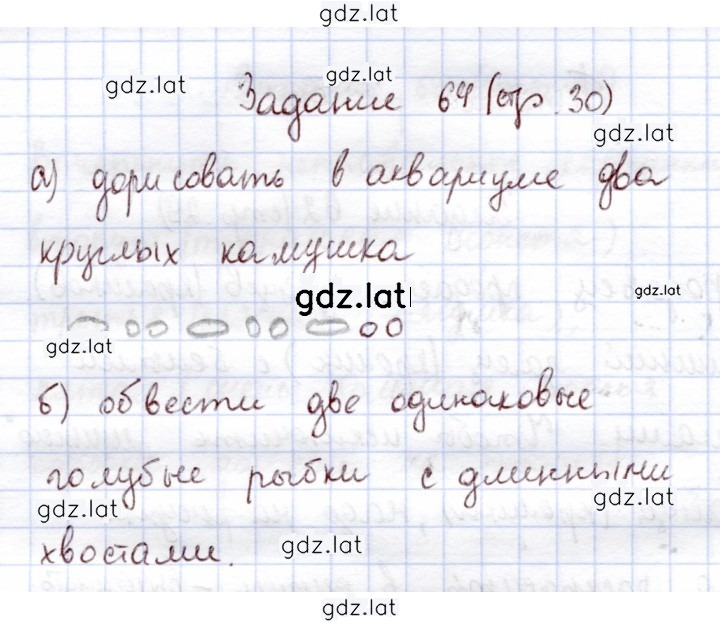 gdz.lat
gdz.lat
gdz.lat
Задание 64 (стр. 30)
gdz.lat
а) дорисовать в аквариуме два
круглых камушка
gdz.lat
gdz.lat
gdz.lat
б) обвести две одинаковые
голубые рыбки с длинными
gdz.lat
gdz.lat
хвостами.
gdz.lat
gdz.lat